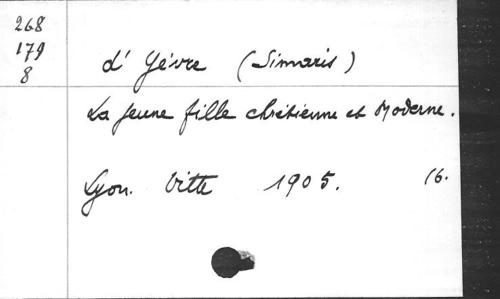 268
179
8
d' Yèvre (Simaris)
La Jeune fille chrétienne et Moderne.
Lyon. Vitte 1905. 16.